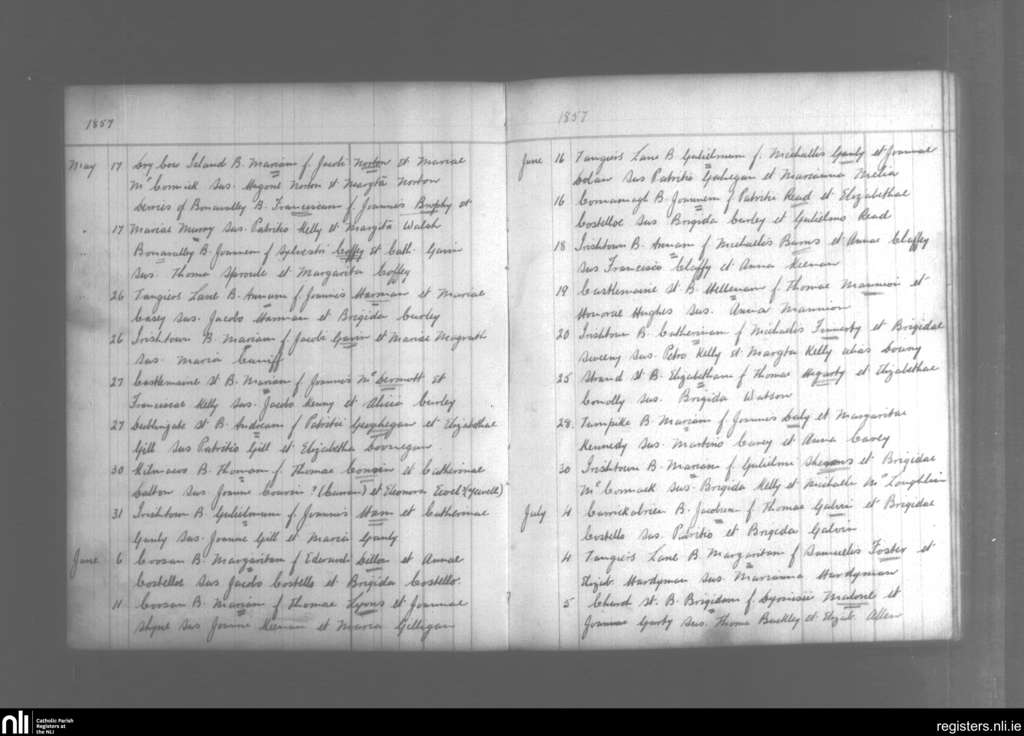 1857
May 17 Dry Cow Island B. Mariam f Jacobi Norton et Mariae
McCormick sus. Norton et Margta Norton
of Bonavalley B. Franciscam f Joannis Brophy et
17 Mariae Murry sus. Patritio Kelly et Margta Walsh
Bonavalley B. Joannem f Sylvestri Coffey et Cath. Gavin
sus. Thoma Sproule et Margarita Coffey
26 Tangiers Lane B. Annam f Joannis Harman et Mariae
Casey sus. Jacobo Harman et Brigida Curley
26 Irishtown B. Mariam f Jacobi Gavin et Mariae Magrath
sus. Maria Cunniff
27 Castlemaine St B. Mariam f Joannis McDermott et
Franciscae Kelly sus. Jacobo Kenny et Alicia Curley
27 Dublingate St B. Andream f Patritii Geoghegan et Elizabethae
Gill sus Patritio Gill et Elizabetha
30 B. Thomam f. Thomae et Catherinae
Dalton sus. Joanne ? (Curran) et Eleonora (Yewell)
31 Irishtown B. Gulielmum f Joannis Ham et Catherinae
Gauly sus. Joanne Gill et Maria Gauly
June 6 Coosan B. Margaritam f Edwardi Dillon et Annae
Costelloe sus Jacobo Costello et Brigida Costello.
11 Coosan B. Mariam f Thomae Lyons et Joannae
Shyne sus Joanne Keenan et Maria Gilligan
1857
June 16 Tangiers Lane B Gulielmum f. Michaellis Gauly et Joannae
Dolan sus Patritio et Marianna Melia
16 Cornamagh B Joannem f Patritii Read et Elizabethae
Costelloe sus Brigida Curley et Gulielmo Read
18 Irishtown B. Annam f Michaelis Burns et Annae Claffey
sus Francisco Claffy et Anna Keenan
19 Castlemaine St B. Hellenam f Thomae Mannion et
Honorae Hughes sus. Anna Mannion
20 Irishtown B Catherinam f Michaelis Finnerty et Brigidae
Sweeny sus. Petro Kelly et Margta Kelly alias Downy
25 Strand St B. Elizabetham f Thomae Hegarty et Elizabethae
Conolly sus. Brigida Watson
28. Turnpike B Mariam f Joannis Daly et Margaritae
Kennedy sus. Martino Carey et Anna Carey
30 Irishtown B. Mariam f. Gulielmi et Brigidae
McCormack sus. Brigida Kelly et Michaele McLoughlin
July 4 Carrickobrien B. Jacobum f Thomae Galvin et Brigidae
Costello sus. Patritio et Brigida Galvin
4 Tangiers Lane B Margaritam f Samuelis Foster et
Elizab. Hardyman sus. Marianna Hardyman
5 Church St. B. Brigidam f Dyonisii et
Joannae Garty sus. Thoma Buckley et Elizab. Allen
nli Catholic Parish
Registers at
the NLI
registers.nli.ie